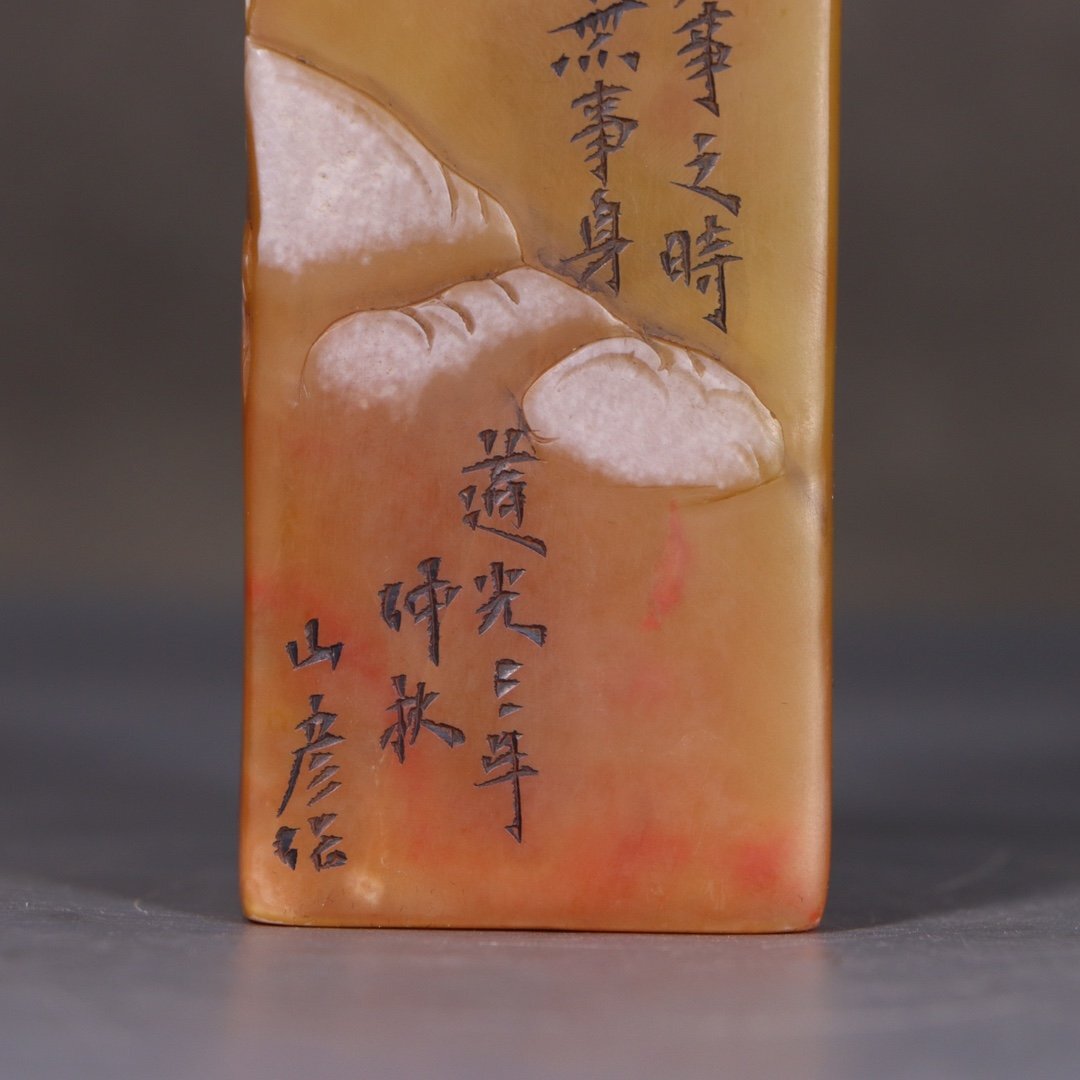 事之時
無事身
道光三年
仲秋
山彥作